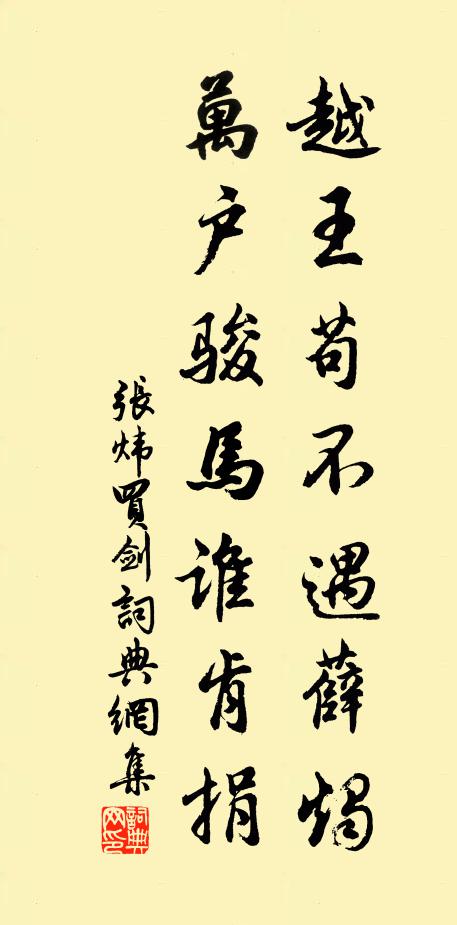 越王苟不遇薛燭
萬户駿馬誰肯捐
張煒買劍詞典網集
詞典網印